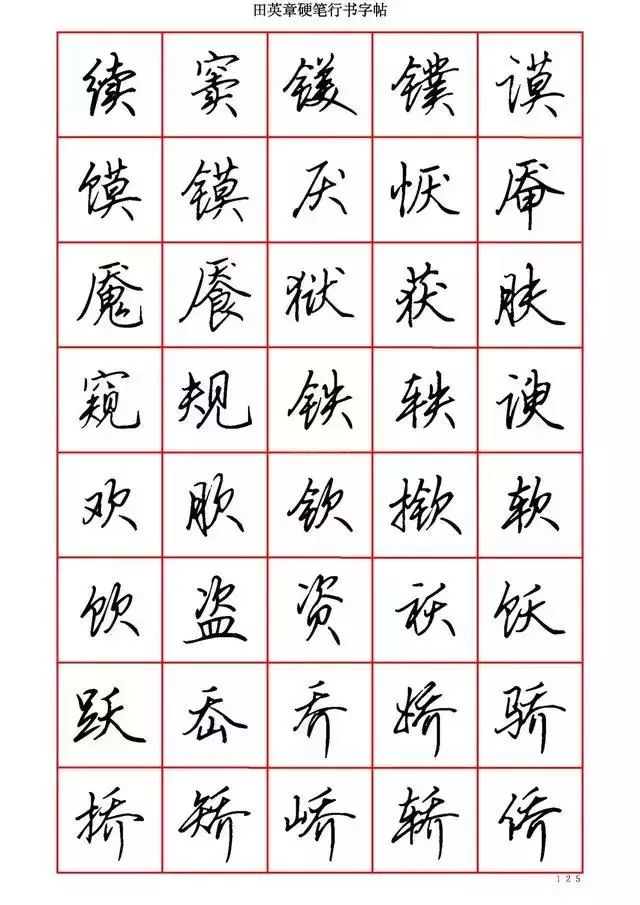 田英章硬笔行书字帖
续窦镁镤谟
馍镆厌恹厣
魇餍狱获肤
窥规铁轶谀
欢肷钦揿软
饮盗资袄饫
跃岙乔娇骄
挢矫峤轿侨
125